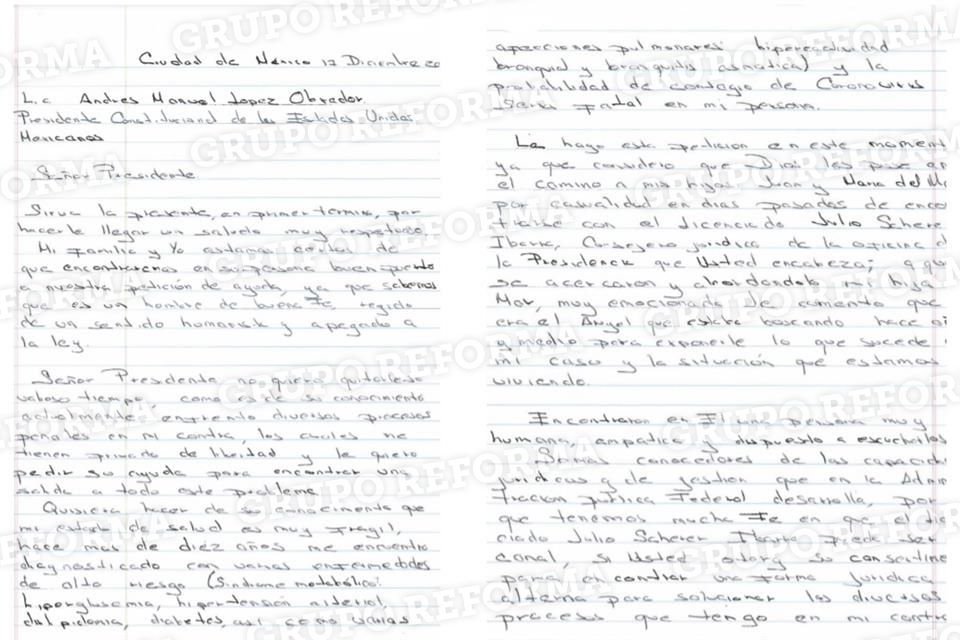 Ciudad de México 17 Diciembre 20
Lic Andrés Manuel López Obrador.
Presidente Constitucional de los Estados Unidos
Mexicanos
Señor Presidente.
Sirva la presente, en primer termino, por
hacerle llegar un saludo muy respetuoso,
Mi familia y Yo estamos ciertos de
que encontraremos en su persona buen puerto
a nuestra petición de ayuda, ya que sabemos
que es un hombre de buena Fe, regido
de un sentido humanista y apegado a
la ley.
Señor Presidente no quiero quitarle su
valioso tiempo, como es de su conocimiento
actualmente enfrento diversos procesos
penales en mi contra, los cuales me
tienen privado de libertad y le quiero
pedir su ayuda para encontrar una
salida a todo este problema.
Quisiera hacer de su conocimiento que
mi estado de salud es muy fragil,
hace mas de diez años me encuentro
diagnosticado con varias enfermedades
de alto riesgo (Sindrome metabólico:
hiperglucemia, hipertensión arterial,
dislipidemia, diabetes, asi como varias
afecciones pulmonares: hipereactividad
bronquial y bronquitis asmatica) y la
probabilidad de contagio de Coronavirus
seria fatal en mi persona.
Le hago esta peticion en este moment
ya que considero que Dios les puso en
el camino a mis hijos Juan y Maria del Ma
por casualidad en dias pasados de enco
trarse con el licenciado Julio Schere
Ibarra, Consejero juridico de la oficina d
la Presidencia que Usted encabeza; a qu
se acercaron y abordandolo mi hija
Mar, muy emocionada le comento que
era el Angel que estaba buscando hace añ
y medio para exponerle lo que sucede
mi caso y la situación que estamos
viviendo.
Encontraron en El una persona muy
humana, empatica y dispuesto a escucharlos
Somos conocedores de las capacid
juridicas y de gestion que en la Admin
tracion pública Federal desarrolla, por
que tenemos mucha Fe en que el lic
ciado Julio Scherer Ibarra puede ser
canal, si Usted y su consentimie
para encontrar una forma juridica
alterna para solucionar los diversos
procesos que tengo en mi contra
GRUPO REFORMA